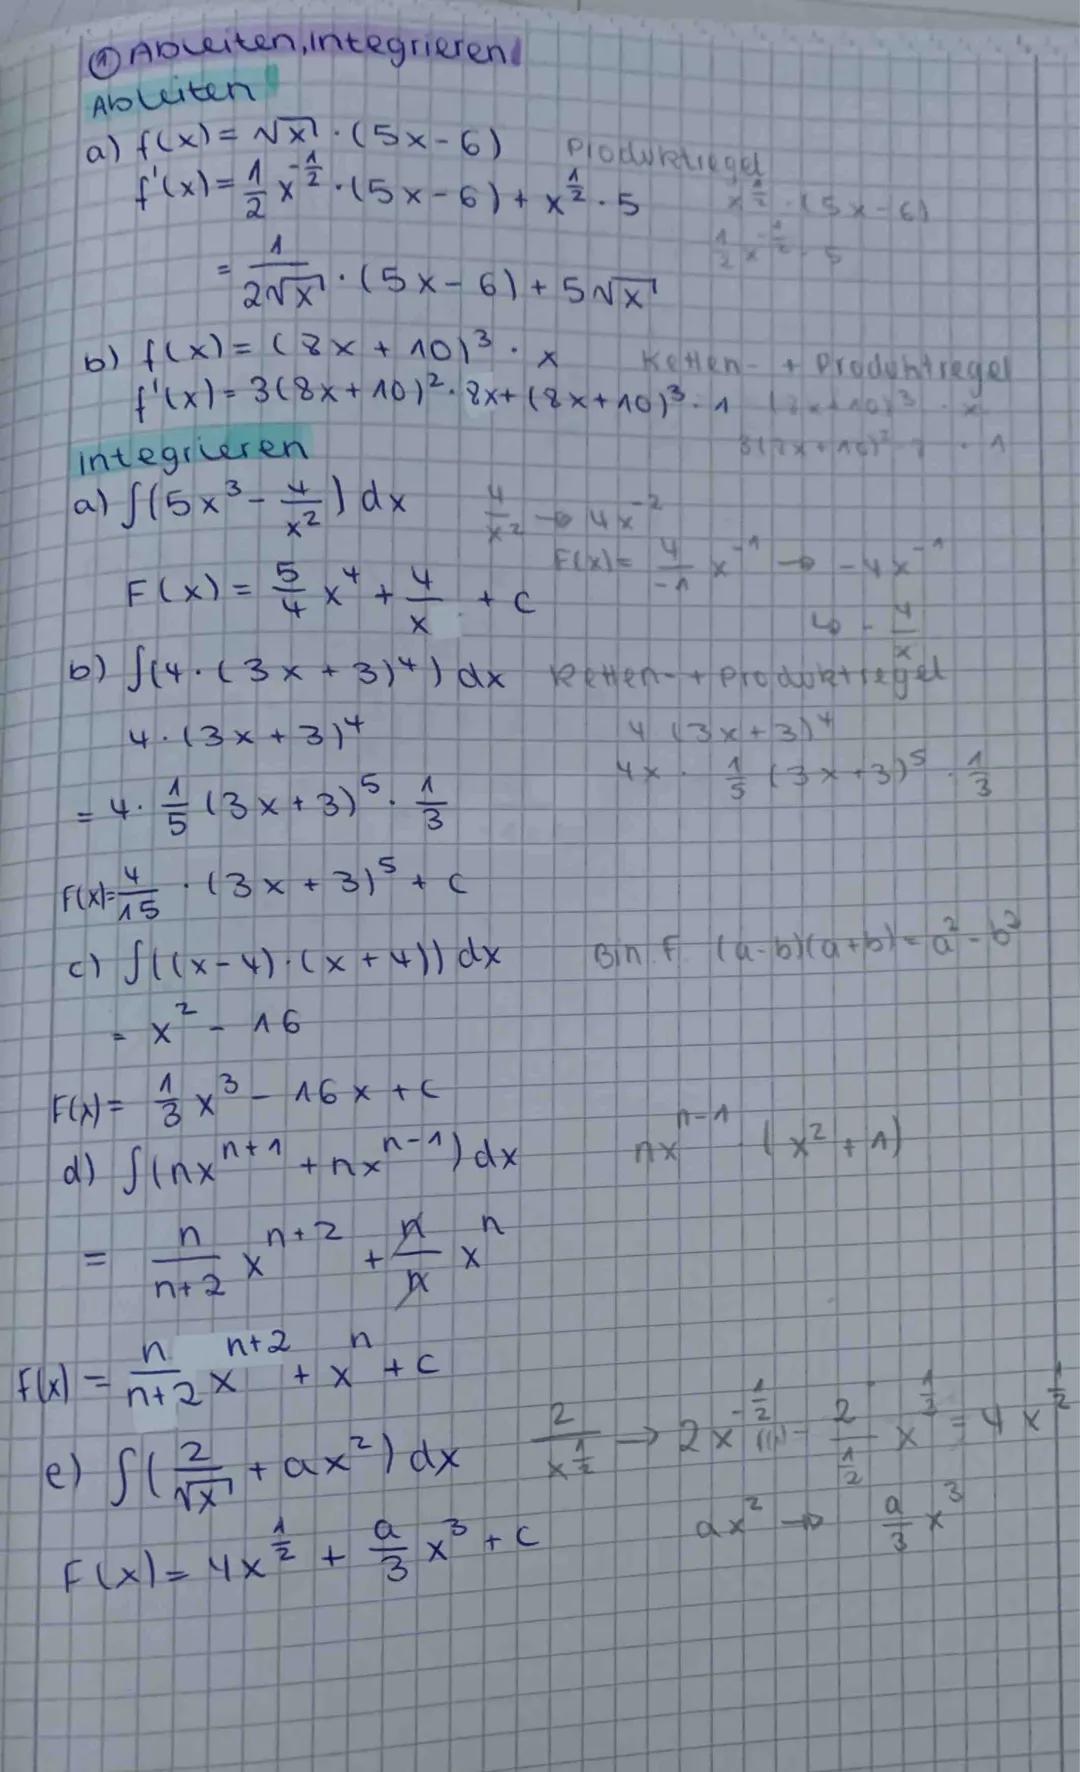 ① Ableiten, integrieren
Ableiten
a) f(x) = √x · (5x - 6) Produktregel
f'(x) = 1/2 x^(-1/2) · (5x - 6) + x^(1/2) · 5 x^(1/2) · (5x - 6)
1/2 x^(-1/2) · 5
= 1/(2√x) · (5x - 6) + 5√x
b) f(x) = (8x + 10)^3 · x Ketten- + Produktregel
f'(x) = 3(8x + 10)^2 · 8x + (8x + 10)^3 · 1 (8x + 10)^3 · x
integrieren
a) ∫(5x^3 - 4/x^2) dx 4/x^2 → 4x^-2
F(x) = 4/-1 x^-1 → -4x^-1
F(x) = 5/4 x^4 + 4/x + c ↳ - 4/x
b) ∫(4 · (3x + 3)^4) dx Ketten- + Produktregel
4 · (3x + 3)^4 4 (3x + 3)^4
= 4 · 1/5 (3x + 3)^5 · 1/3 4x · 1/5 (3x + 3)^5 · 1/3
F(x) = 4/15 · (3x + 3)^5 + c
c) ∫((x - 4) · (x + 4)) dx Bin. F. (a - b)(a + b) = a^2 - b^2
= x^2 - 16
F(x) = 1/3 x^3 - 16x + c
d) ∫(nx^(n+1) + nx^(n-1)) dx nx^(n-1) (x^2 + 1)
= n/(n+2) x^(n+2) + n/n x^n
F(x) = n/(n+2) x^(n+2) + x^n + c
e) ∫(2/√x + ax^2) dx 2/x^(1/2) → 2x^(-1/2) 2/(1/2) x^(1/2) = 4x^(1/2)
F(x) = 4x^(1/2) + a/3 x^3 + c ax^2 → a/3 x^3